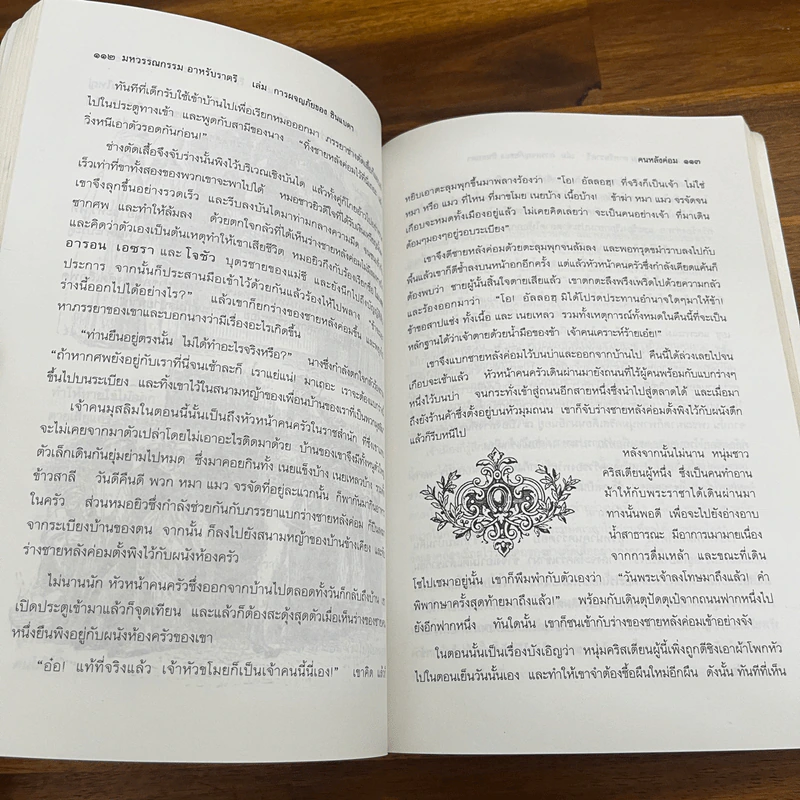 ๑๑๒ มหาวรรณกรรม อาหรับราตรี เล่ม การผจญภัยของ ซินแบดฯ
ทันทีที่เด็กรับใช้เข้าบ้านไปเพื่อเรียกหมอออกมา ภรรยาช่างตัดเสื้อก็
ไปในประตูทางเข้า และพูดกับสามีของนาง "ทิ้งชายหลังค่อมไว้ที่นี่
วิ่งหนีเอาตัวรอดกันก่อน!"
ช่างตัดเสื้อจึงจับร่างนั้นพิงไว้บริเวณเชิงบันได แล้วทั้งคู่ก็โกยอ้าว
เร็วเท่าที่ขาทั้งสองของพวกเขาจะพาไปได้ หมอชาวยิวดีใจที่ได้
เขาจึงลุกขึ้นอย่างรวดเร็ว และรีบลงบันไดมาท่ามกลางความมืด
ซากศพ และทำให้ล้มลง ด้วยตกใจกลัวที่ได้เห็นร่างชายหลังค่อม
และคิดว่าตัวเองเป็นต้นเหตุทำให้เขาเสียชีวิต หมอยิวกึ่งกับร้อง
อารอน เอซรา และ โจชัว บุตรชายของแม่ชี และยังนึกไปถึง
ประการ จากนั้นก็ประสานมือเข้าไว้ด้วยกันแล้วร้องไห้ไปพลาง
ร่างนี้ออกไปได้อย่างไร?" แล้วเขาก็ยกร่างของชายหลังค่อมขึ้น
หาภรรยาของเขาและบอกนางว่ามีเรื่องอะไรเกิดขึ้น
"ท่านยืนอยู่ตรงนั้น ไม่ได้ทำอะไรจริงหรือ?" นางซึ่งกำลังตกใจกลัว
"ถ้าหากศพยังอยู่กับเราที่นี่จนเช้าละก็ เราแย่แน่! มาเถอะ เราจะต้อง
ขึ้นไปบนระเบียง และทิ้งเขาไว้ในสนามหญ้าของเพื่อนบ้านของเราที่เป็น
เจ้าคนมุสลิมในตอนนี้นั้นเป็นถึงหัวหน้าคนครัวในราชสำนัก ที่ซึ่ง
จะไม่เคยจากมาตัวเปล่าโดยไม่เอาอะไรติดมาด้วย บ้านของเขาจึงมี
ตัวเล็กเดินกันยุ่มย่ามไปหมด ซึ่งมาคอยกินทั้ง เนยแข็งบ้าง เนยเหลวบ้าง
ข้าวสาลี วันดีคืนดี พวก หมา แมว จรจัดที่อยู่ละแวกนั้น ก็พากันมา
ในครัว ส่วนหมอยิวซึ่งกำลังช่วยกันกับภรรยาแบกร่างชายหลังค่อม
จากระเบียงบ้านของตน จากนั้น ก็ลงไปยังสนามหญ้าของบ้านข้างเคียง และ
ร่างชายหลังค่อมตั้งพิงไว้กับผนังห้องครัว
ไม่นานนัก หัวหน้าคนครัวซึ่งออกจากบ้านไปตลอดทั้งวันก็กลับถึงบ้าน
เปิดประตูเข้ามาแล้วก็จุดเทียน และแล้วก็ต้องสะดุ้งสุดตัวเมื่อเห็นร่างของชาย
หนึ่งยืนพิงอยู่กับผนังห้องครัวของเขา
"อ๋อ! แท้ที่จริงแล้ว เจ้าหัวขโมยก็เป็นเจ้าคนนี้นี่เอง!" เขาคิด แล้ว
คนหลังค่อม ๑๑๓
หยิบเอาตะลุมพุกขึ้นมาพลางร้องว่า "โอ! อัลลอฮฺ! ที่จริงก็เป็นเจ้า ไม่ใช่
หมา หรือ แมว ที่ไหน ที่มาขโมย เนยบ้าง เนื้อบ้าง! ข้าฆ่า หมา แมว จรจัดจน
เกือบจะหมดทั้งเมืองอยู่แล้ว ไม่เคยคิดเลยว่า จะเป็นคนอย่างเจ้า ที่มาเดิน
ด้อมๆมองๆอยู่รอบระเบียง"
เขาจึงตีชายหลังค่อมด้วยตะลุมพุกจนล้มลง และพอทรุดขม้ำราบลงไปกับ
พื้นแล้วเขาก็ตีซ้ำลงบนหน้าอกอีกครั้ง แต่แล้วหัวหน้าคนครัวซึ่งกำลังเคียดแค้นก็
ต้องพบว่า ชายผู้นั้นสิ้นใจตายเสียแล้ว เขาตกตะลึงพรึงเพริดไปด้วยความกลัว
และร้องออกมาว่า "โอ! อัลลอฮฺ มิได้โปรดประทานอำนาจใดๆมาให้ข้า!
ข้าขอสาปแช่ง ทั้งเนื้อ และ เนยเหลว รวมทั้งเหตุการณ์ทั้งหมดในคืนนี้ที่จะเป็น
หลักฐานได้ว่าเจ้าตายด้วยน้ำมือของข้า เจ้าคนเคราะห์ร้ายเอ๋ย!"
เขาจึงแบกชายหลังค่อมไว้บนบ่าและออกจากบ้านไป คืนนี้ได้ล่วงเลยไปจน
เกือบจะเช้าแล้ว หัวหน้าคนครัวเดินผ่านมายังถนนที่ไร้ผู้คนพร้อมกับแบกร่างๆ
หนึ่งไว้บนบ่า จนกระทั่งเข้าสู่ถนนอีกสายหนึ่งซึ่งนำไปสู่ตลาดได้ และเมื่อมา
ถึงยังร้านค้าซึ่งตั้งอยู่บนหัวมุมถนน เขาก็จับร่างชายหลังค่อมตั้งพิงไว้กับผนังตึก
แล้วก็รีบหนีไป
หลังจากนั้นไม่นาน หนุ่มชาว
คริสเตียนผู้หนึ่ง ซึ่งเป็นคนทำอาน
ม้าให้กับพระราชาได้เดินผ่านมา
ทางนั้นพอดี เพื่อจะไปยังอ่างอาบ
น้ำสาธารณะ มีอาการเมามายเนื่อง
จากการดื่มเหล้า และขณะที่เดิน
โซไปเซมาอยู่นั้น เขาก็พึมพำกับตัวเองว่า "วันพระเจ้าลงโทษมาถึงแล้ว! คำ
พิพากษาครั้งสุดท้ายมาถึงแล้ว!" พร้อมกับเดินตุปัดตุเป๋จากถนนฟากหนึ่งไป
ยังอีกฟากหนึ่ง ทันใดนั้น เขาก็ชนเข้ากับร่างของชายหลังค่อมเข้าอย่างจัง
ในตอนนั้นเป็นเรื่องบังเอิญว่า หนุ่มคริสเตียนผู้นี้เพิ่งถูกตีชิงเอาผ้าโพกหัว
ไปในตอนเย็นวันนั้นเอง และทำให้เขาจำต้องซื้อผืนใหม่อีกผืน ดังนั้น ทันทีที่เห็น